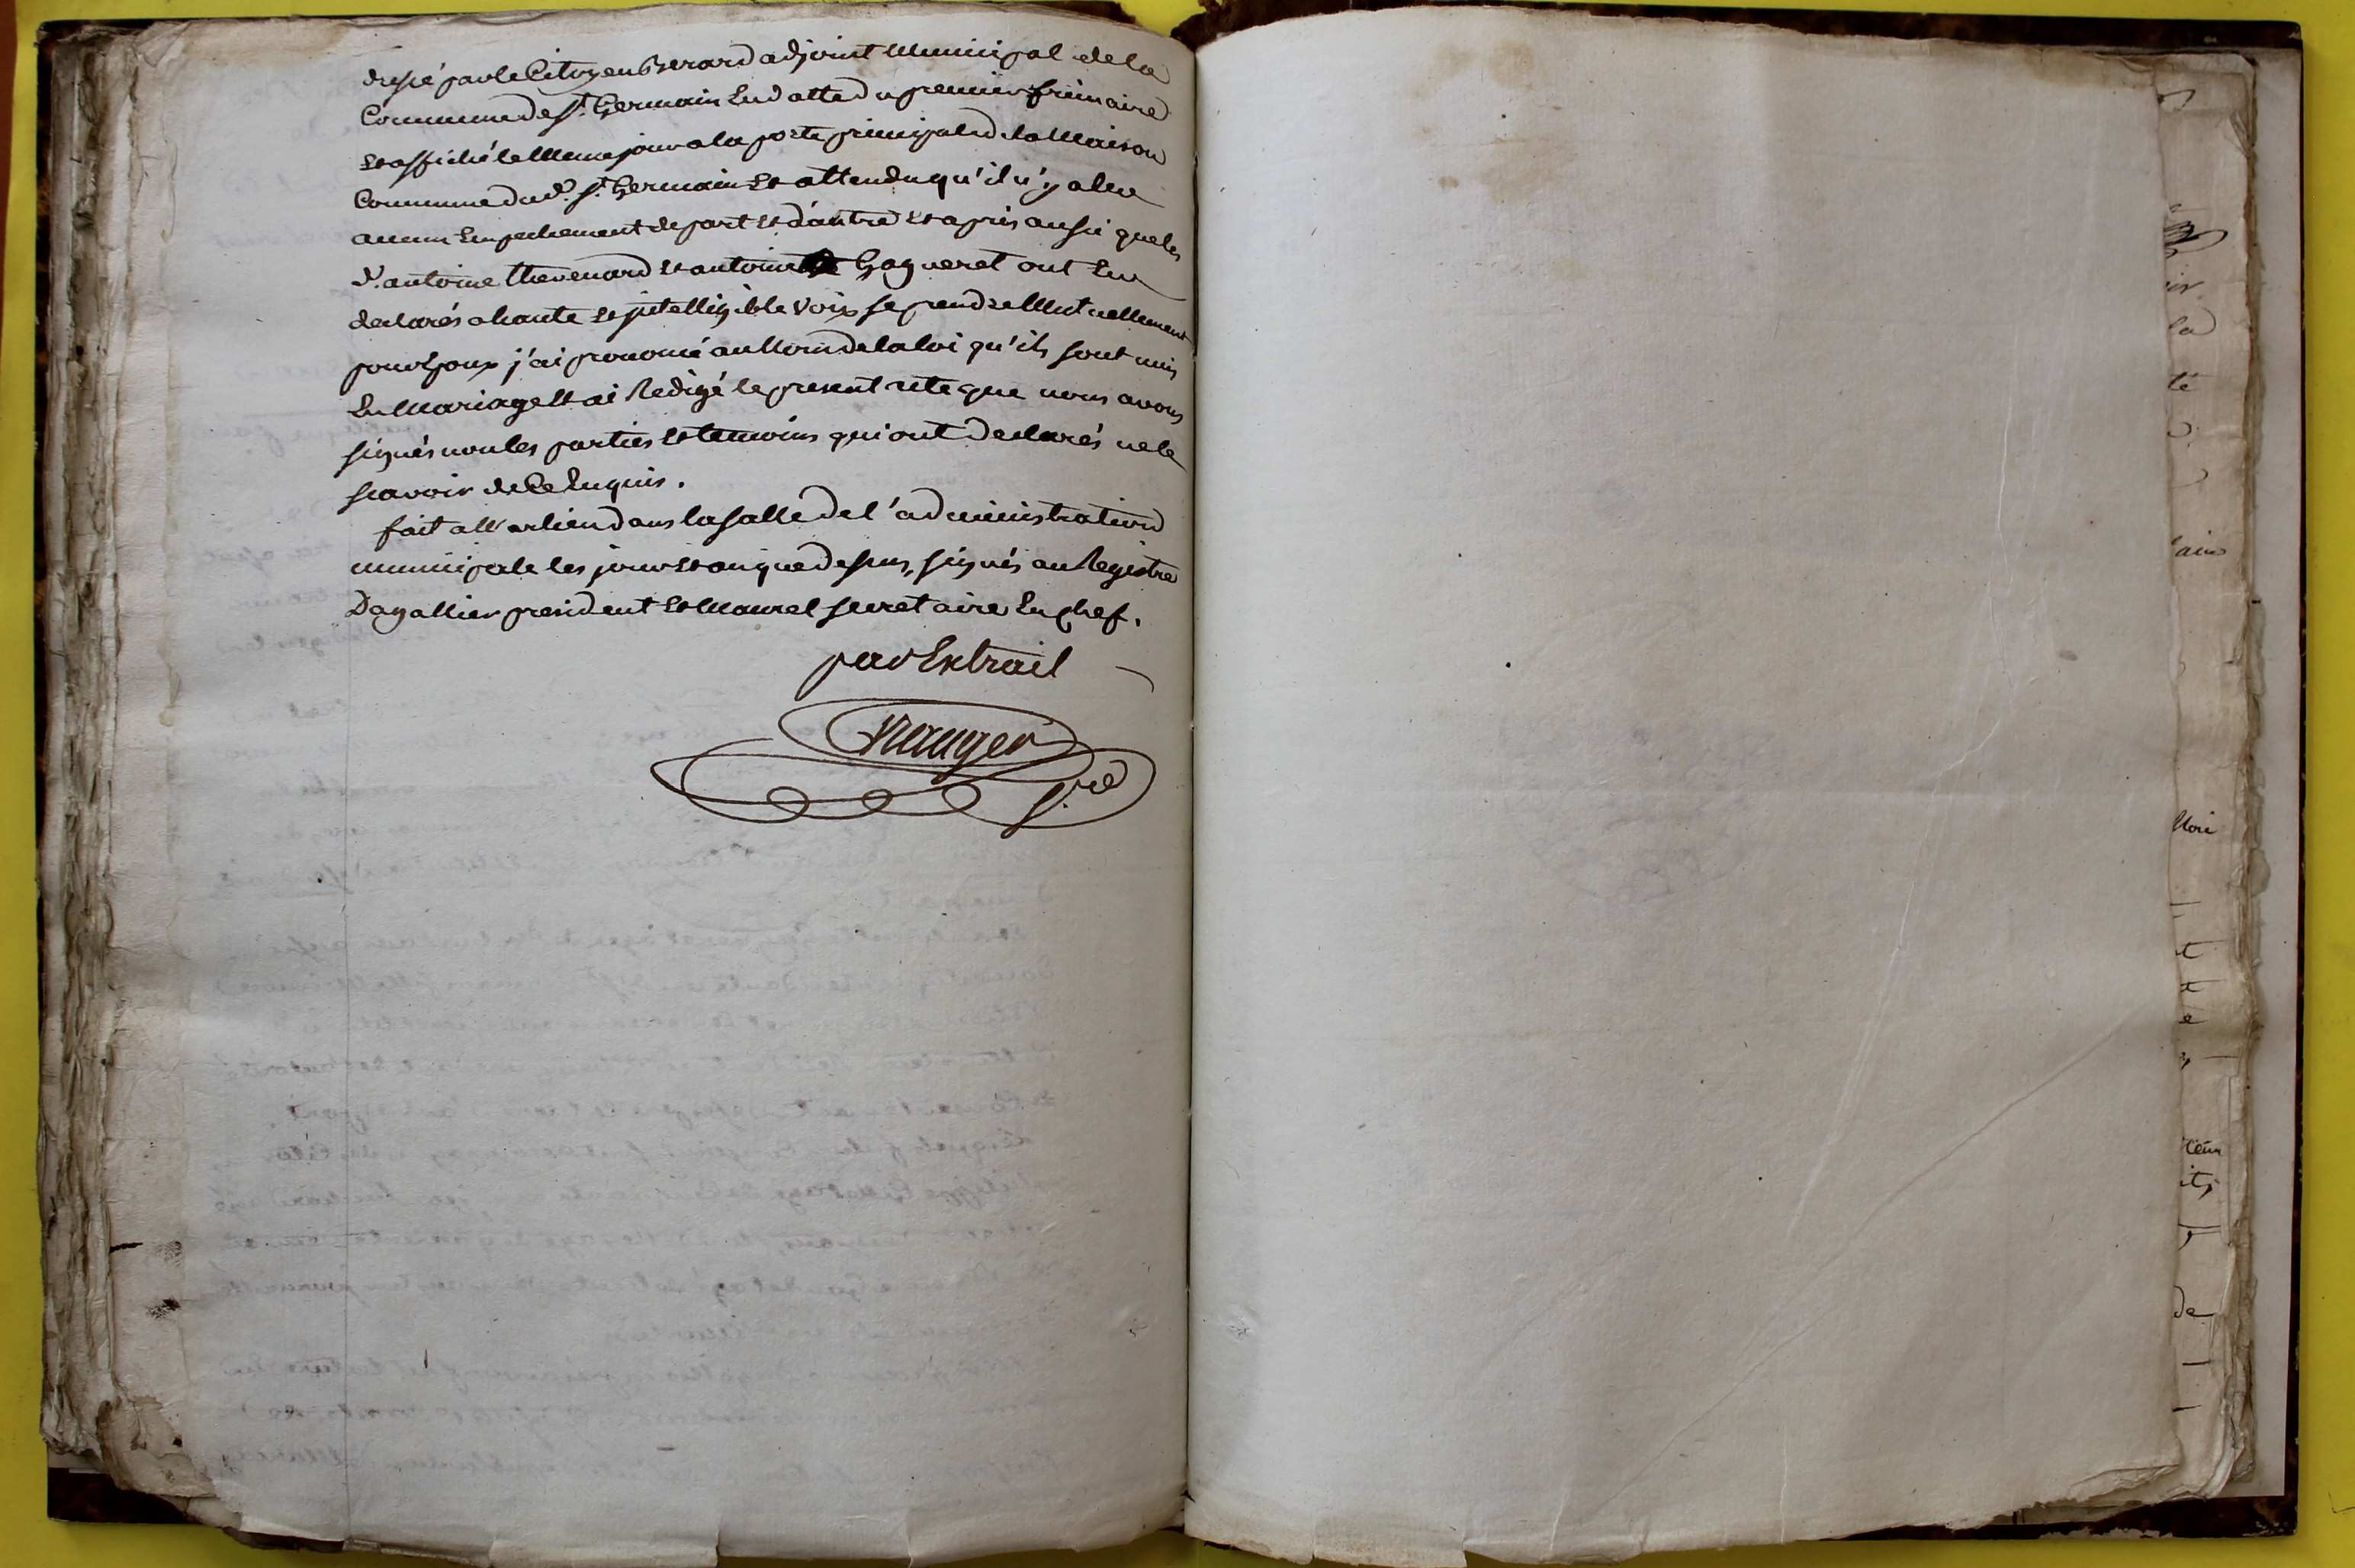 dressé par le Citoyen Berard adjoint Municipal de la
Commune de St. Germain En datte du premier frimaire
Et affiché le Meme jour a la porte principale de la Maison
Commune dud. St. Germain Et attendu qu'il n'y a Eu
aucun Empechement de part Et d'autre Et après aussi que les
d. antoine thevenard Et antoinette Gagneret ont Eu
declarés a haute Et jntelligible Voix se prendre Mutuellement
pour Epoux j'ai prononcé au Nom de la loi qu'ils sont unis
En Mariage Et ai Redigé le present acte que nous avons
signés non les parties Et temoins qui ont declarés ne le
scavoir de Ce Enquis.
fait a Marlieu dans la salle de l'administration
municipale les jour Et an que dessus, signés au Registre
Dagallier president Et Maurel secretaire En chef.
par Extrait
Nauger
s.re
la
té
de